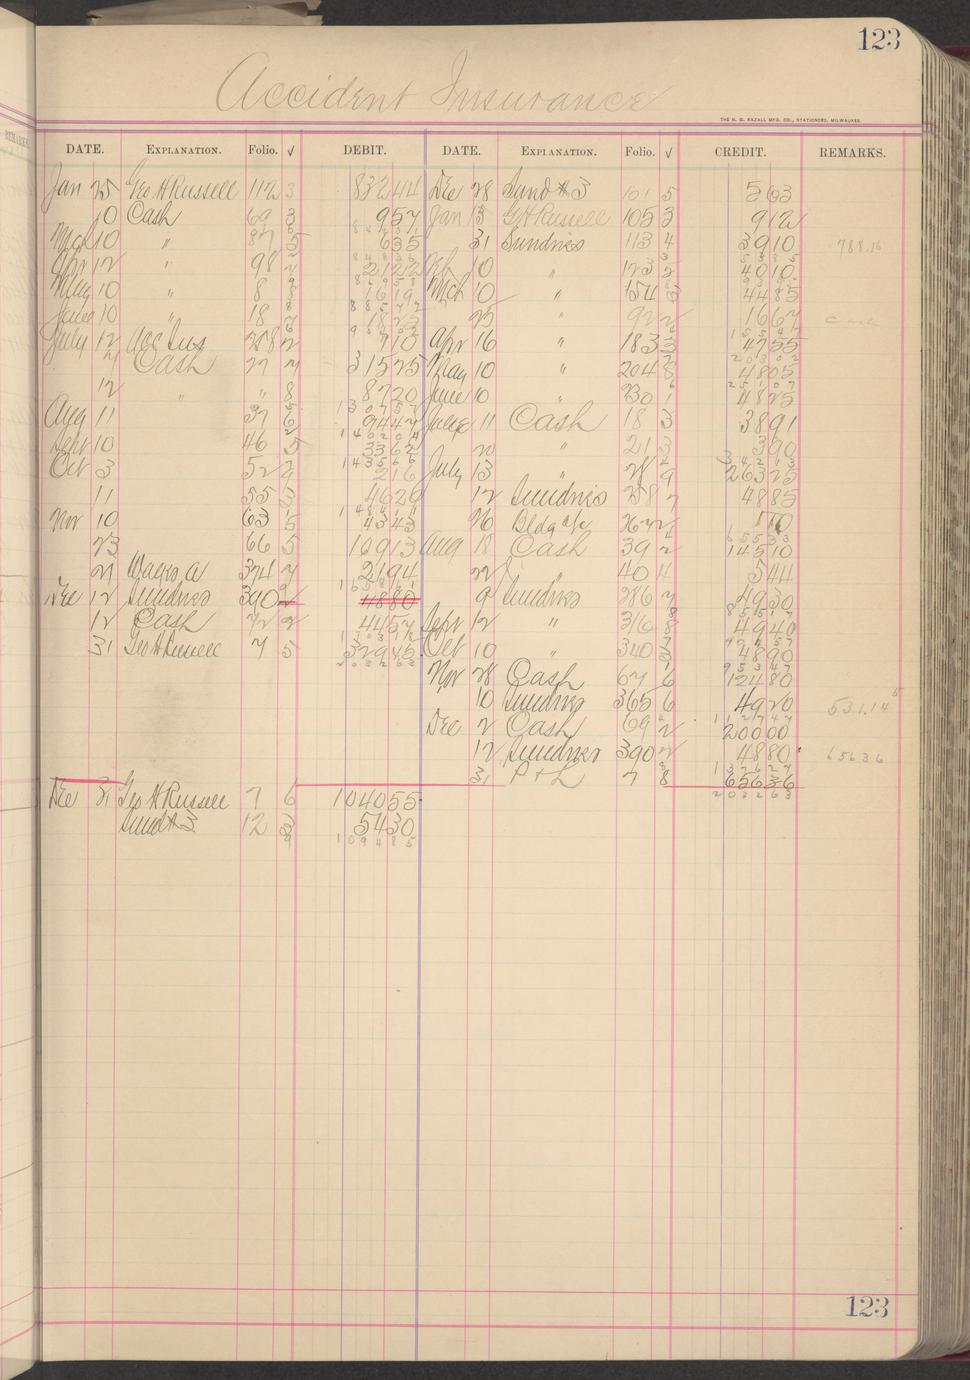 123
Accident Insurance
THE H. G. RAZALL MFG. CO., STATIONERS, MILWAUKEE.
DATE. EXPLANATION. Folio. √ DEBIT. DATE. EXPLANATION. Folio. √ CREDIT. REMARKS.
Jan 25 Geo H Russell 112 3 832 44 Dec 28 Sund # 3 101 5 5 63
10 Cash 69 3 9 57 Jan 13 G H Russell 105 3 9 12
Mch 10 " 87 5 6 35 31 Sundries 113 4 39 10 788.16
Apr 12 " 98 21 22 Feb 10 " 123 40 10
May 10 " 8 16 19 Mch 10 " 154 44 85
June 10 " 18 18 25 25 " 92 16 67
July 12 Acc Ins 258 2 7 10 Apr 16 " 183 47 55
Cash 27 7 315 25 May 10 " 204 48 05
12 " " 8 87 20 June 10 " 230 1 48 25
Aug 11 37 6 94 47 June 11 Cash 18 3 38 91
Sept 10 46 5 33 62 " 21 3 3 90
Oct 3 52 2 16 July 13 " 28 9 263 25
11 55 3 46 20 12 Sundries 258 7 48 85
Nov 10 63 5 43 43 26 Bldg a/c 267 1 70
23 66 5 109 13 Aug 18 Cash 39 2 145 10
21 Wages a 374 7 21 94 22 " 40 4 5 44
Dec 12 Sundries 390 48 80 9 Sundries 286 7 49 30
12 Cash 72 44 57 Sept 12 " 316 8 49 40
31 Geo H Russell 7 5 329 45 Oct 10 " 340 3 48 90
2 0 3 2 6 3
Nov 28 Cash 67 6 124 80
10 Sundries 365 6 49 20 531.14
Dec 2 Cash 69 200 00
12 Sundries 390 48 80 656 36
31 P & L 7 8 656 36
2 0 3 2 6 3
Dec 31 Geo H Russell 7 6 1040 55
Sund # 3 12 54 30
1 0 9 4 8 5
123